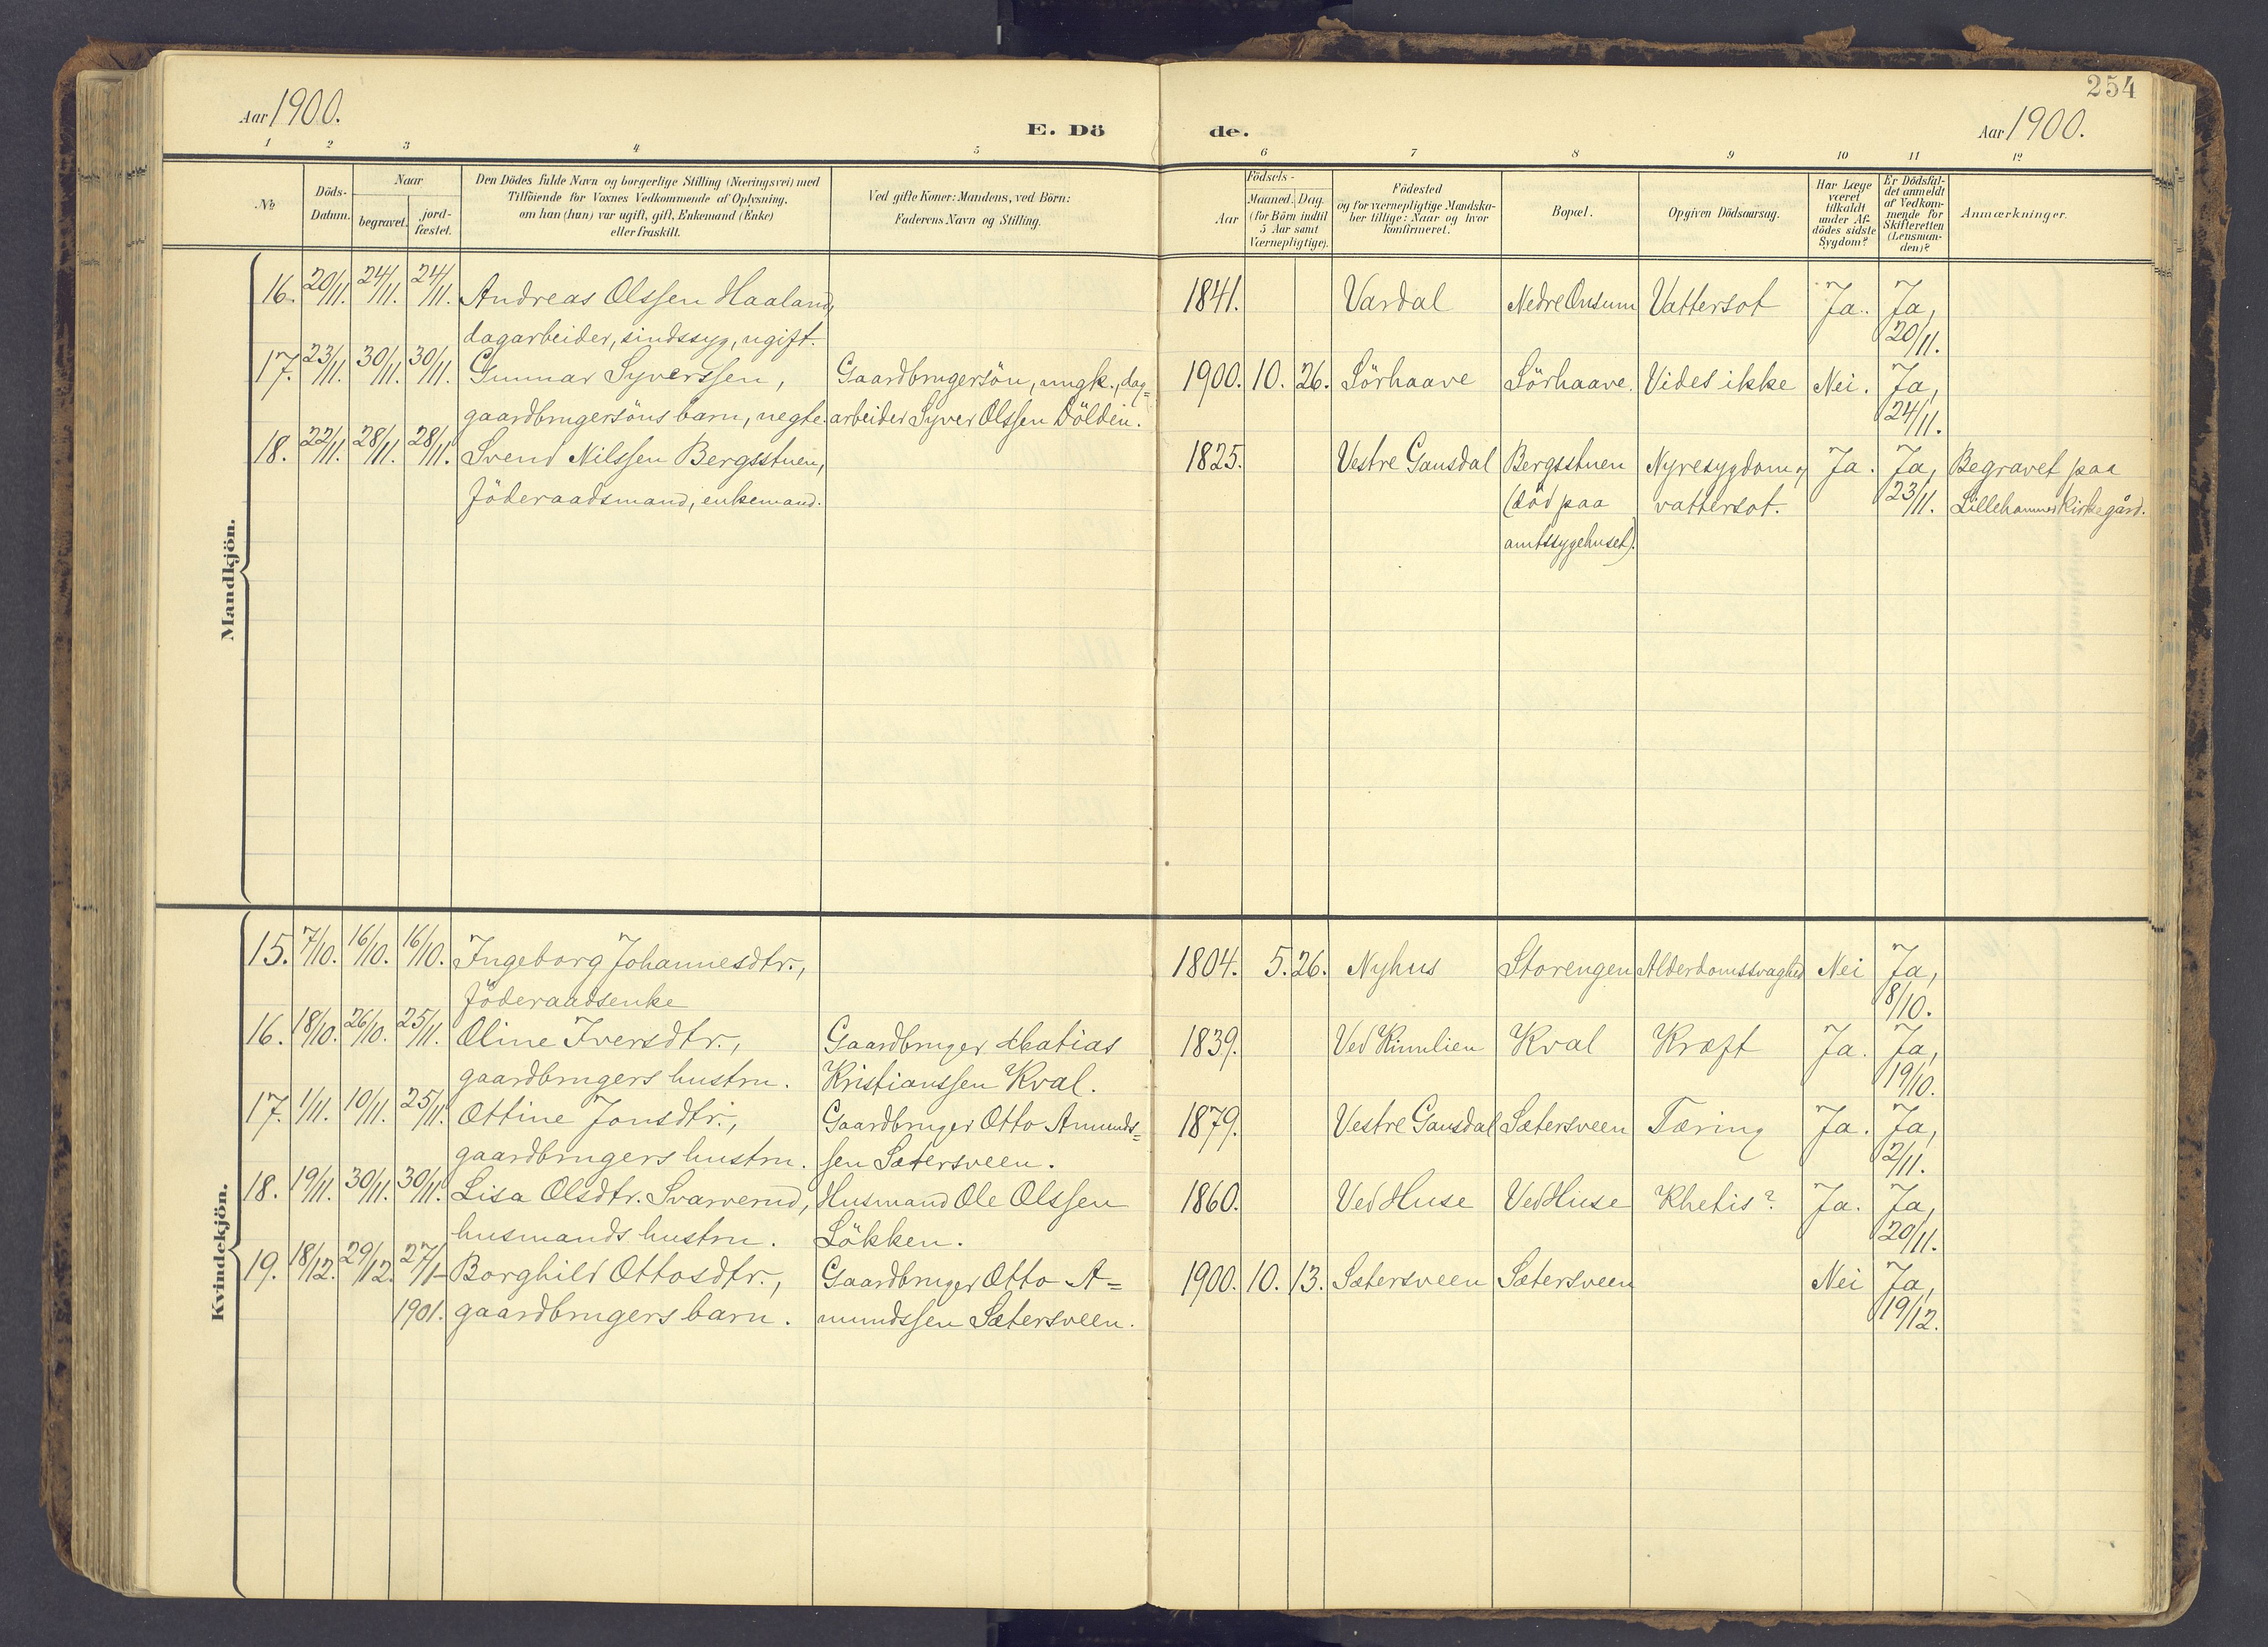 254
Aar 1900.
E. Döde.
Aar 1900.
1 2 3 4 5 6 7 8 9 10 11 12
No.
Döds-Datum.
Naar
begravet.
jord-fæstet.
Den Dödes fulde Navn og borgerlige Stilling (Næringsvei) med
Tilföiende for Voxnes Vedkommende af Oplysning,
om han (hun) var ugift, gift, Enkemand (Enke)
eller fraskilt.
Ved gifte Koner: Mandens, ved Börn:
Faderens Navn og Stilling.
Födsels-
Aar
Maaned. Dag.
(for Börn indtil
5 Aar samt
Værnepligtige).
Födested
og for værnepligtige Mandska-
ber tillige: Naar og hvor
konfirmeret.
Bopæl.
Opgiven Dödsaarsag.
Har Læge
været
tilkaldt
under Af-
dödes sidste
Sygdom?
Er Dödsfal-
det anmeldt
af Vedkom-
mende for
Skifteretten
(Lensman-
den)?
Anmærkninger.
Mandkjön.
16. 20/11. 24/11. 24/11. Andreas Olssen Haaland, 1841. Vardal Nedre Onsum Vattersot Ja. Ja,
dagarbeider, sindssyg, ugift. 20/11.
17. 23/11. 30/11. 30/11. Gunnar Syverssen, Gaardbrugersön, ungk., dag= 1900. 10. 26. Sörhaave Sörhaave. Vides ikke Nei. Ja,
gaardbrugersöns barn, uegte. arbeider Syver Olssen Dölden. 24/11.
18. 22/11. 28/11. 28/11. Svend Nilssen Bergsstuen, 1825. Vestre Gausdal Bergsstuen Nyresygdom og Ja. Ja, Begravet paa
föderaadsmand, enkemand. (död paa vattersot. 23/11. Lillehammer kirkegård.
amtssygehuset).
Kvindekjön.
15. 7/10. 16/10. 16/10. Ingeborg Johannesdtr., 1804. 5. 26. Nyhus Storengen Alderdomssvaghed Nei Ja,
föderaadsenke 8/10.
16. 18/10. 26/10. 25/11. Oline Iversdtr., Gaardbruger Matias 1839. Ved Kinnlien Kval Kræft Ja. Ja,
gaardbrugers hustru. Kristianssen Kval. 19/10.
17. 1/11. 10/11. 25/11. Ottine Jonsdtr., Gaardbruger Otto Amunds= 1879. Vestre Gausdal Sætersveen Tæring Ja. Ja,
gaardbrugers hustru. sen Sætersveen. 2/11.
18. 19/11. 30/11. 30/11. Lisa Olsdtr. Svarverud, Husmand Ole Olssen 1860. Ved Huse Ved Huse Khetis? Ja. Ja,
husmands hustru. Lökken. 20/11.
19. 18/12. 29/12. 27/1- Borghild Ottosdtr., Gaardbruger Otto A= 1900. 10. 13. Sætersveen Sætersveen Nei Ja,
1901. gaardbrugers barn. mundssen Sætersveen. 19/12.